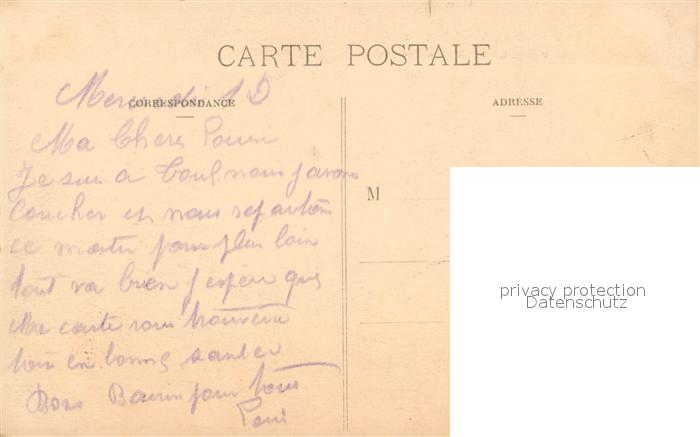 CARTE POSTALE
Mercredi 1 D
CORRESPONDANCE
ADRESSE
Ma Chere
Je sui a Toul nous y avons
coucher et nous repartons
ce matin pour plus loin
tout va bien j espere que
Ma carte vous trouvera
tous en bonne santer
Bons pour tous
M
privacy protection
Datenschutz